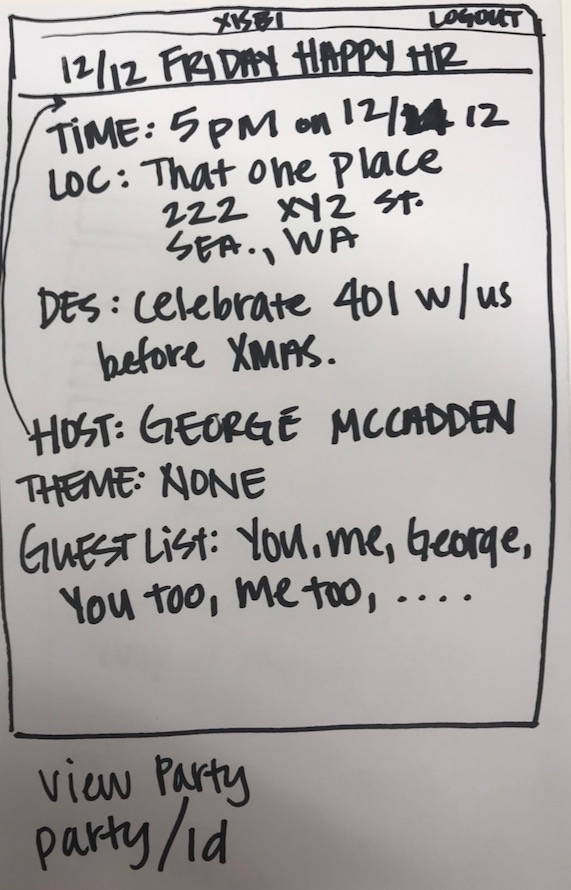 LOGOUT
12/12 FRIDAY HAPPY HR
TIME: 5PM on 12/ 12
LOC: That one place
222 XYZ St.
SEA., WA
DES: Celebrate 401 w/us
before XMAS.
HOST: GEORGE MCCADDEN
THEME: NONE
GUEST LIST: You, me, George,
You too, me too, ....
View Party
party/id